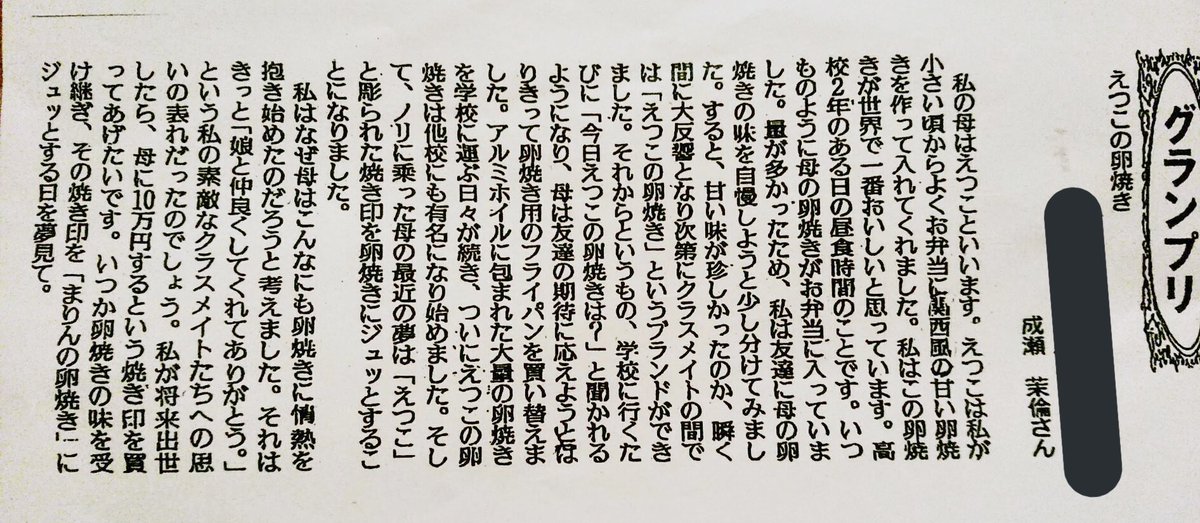 グランプリ
えつこの卵焼き
成瀬　茉倫さん
　私の母はえつこといいます。えつこは私が
小さい頃からよくお弁当に関西風の甘い卵焼
きを作って入れてくれました。私はこの卵焼
きが世界で一番おいしいと思っています。高
校2年のある日の昼食時間のことです。いつ
ものように母の卵焼きがお弁当に入っていま
した。量が多かったため、私は友達に母の卵
焼きの味を自慢しようと少し分けてみまし
た。すると、甘い味が珍しかったのか、瞬く
間に大反響となり次第にクラスメイトの間で
は「えつこの卵焼き」というブランドができ
ました。それからというもの、学校に行くた
びに「今日えつこの卵焼きは？」と聞かれる
ようになり、母は友達の期待に応えようとは
りきって卵焼き用のフライパンを買い替えま
した。アルミホイルに包まれた大量の卵焼き
を学校に運ぶ日々が続き、ついにえつこの卵
焼きは他校にも有名になり始めました。そし
て、ノリに乗った母の最近の夢は「えつこ」
と彫られた焼き印を卵焼きにジュッとするこ
とになりました。
　私はなぜ母はこんなにも卵焼きに情熱を
抱き始めたのだろうと考えました。それは
きっと「娘と仲良くしてくれてありがとう。」
という私の素敵なクラスメイトたちへの思
いの表れだったのでしょう。私が将来出世
したら、母に10万円するという焼き印を買
ってあげたいです。いつか卵焼きの味を受
け継ぎ、その焼き印を「まりんの卵焼き」に
ジュッとする日を夢見て。